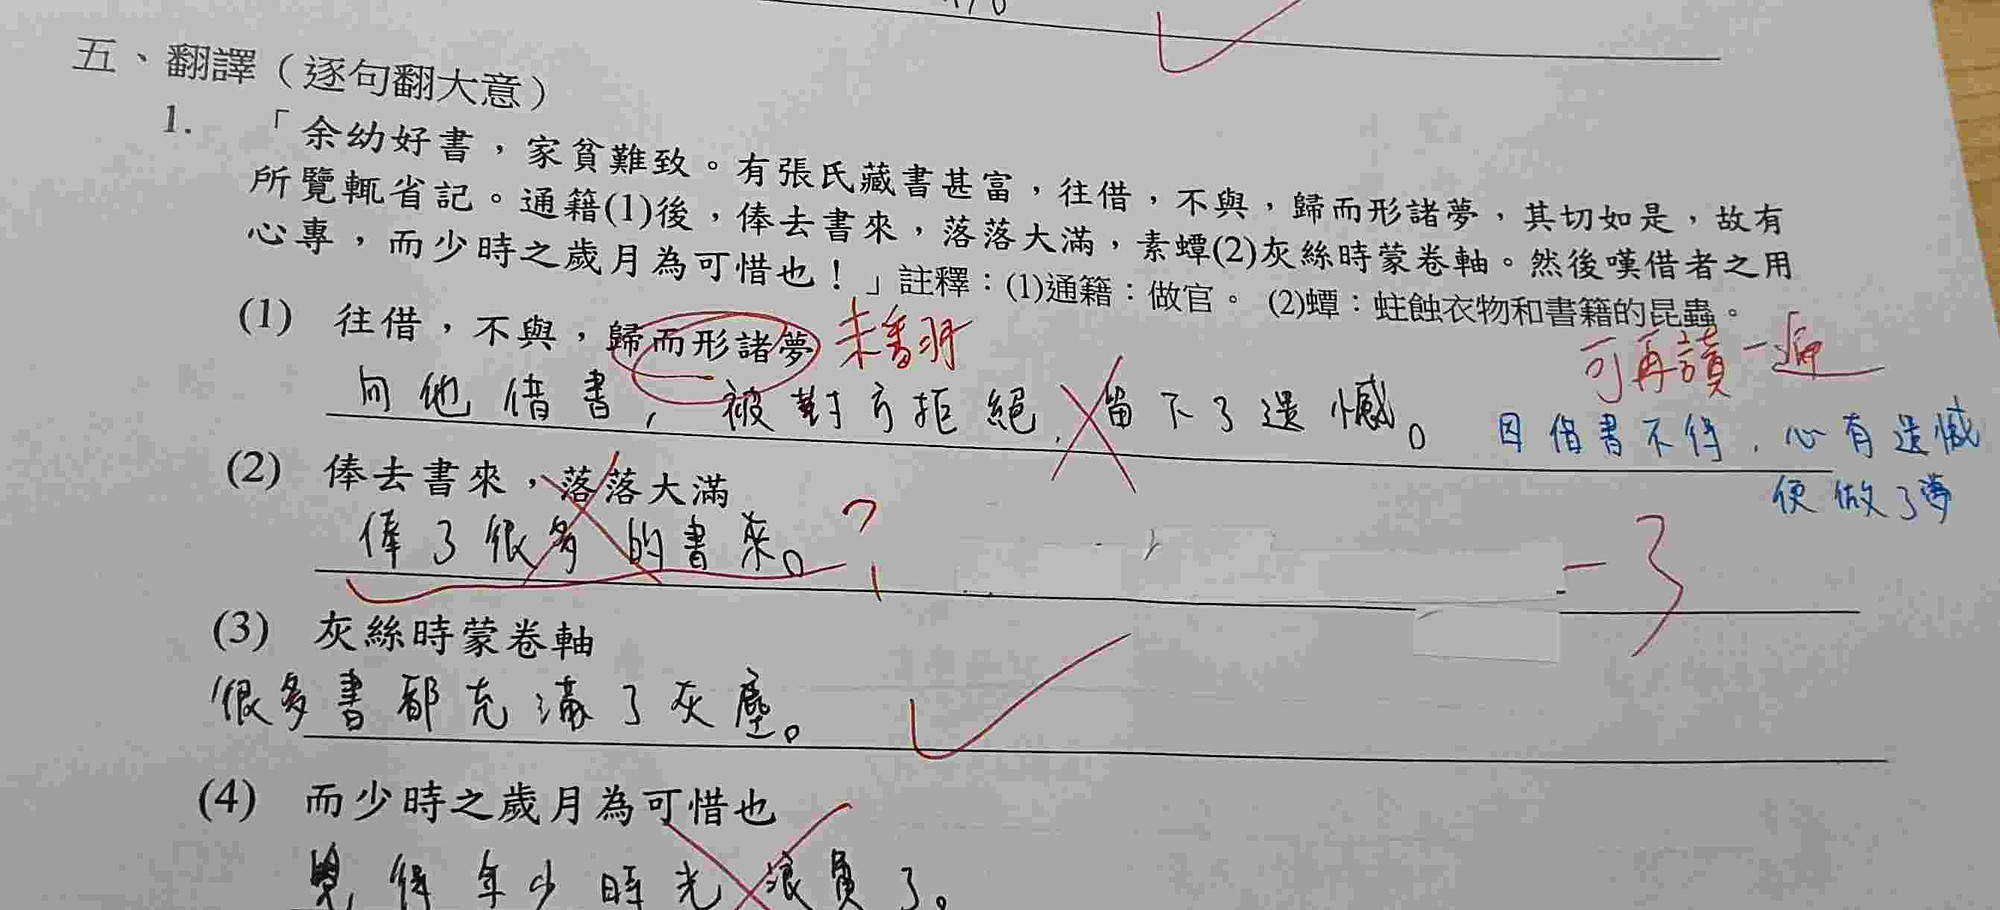 五、翻譯（逐句翻大意）
1. 「余幼好書，家貧難致。有張氏藏書甚富，往借，不與，歸而形諸夢，其切如是，故有
所覽輒省記。通籍(1)後，俸去書來，落落大滿，素蟫(2)灰絲時蒙卷軸。然後嘆借者之用
心專，而少時之歲月為可惜也！」註釋：(1)通籍：做官。 (2)蟫：蛀蝕衣物和書籍的昆蟲。
(1) 往借，不與，歸而形諸夢
可再讀一遍
向他借書，被對方拒絕，留下了遺憾。
因借書不得，心有遺憾
便做了夢
(2) 俸去書來，落落大滿
俸了很多的書來。
?
-3
(3) 灰絲時蒙卷軸
很多書都充滿了灰塵。
(4) 而少時之歲月為可惜也
覺得年少時光浪費了。